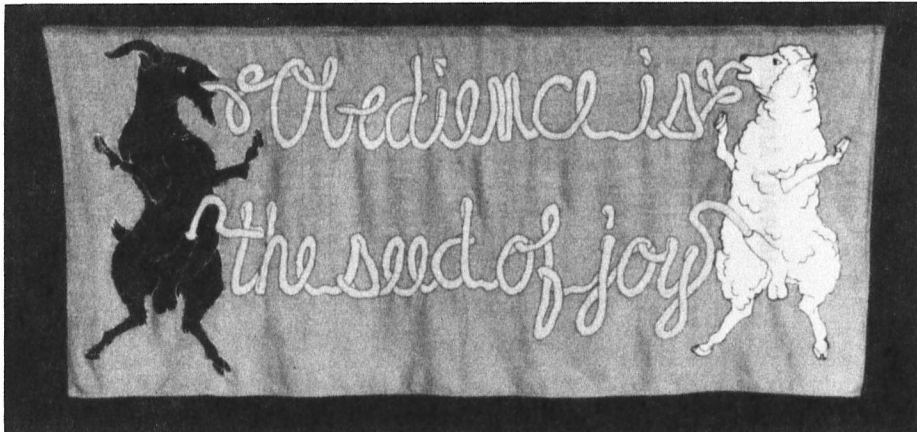 Obedience is
the seed of joy